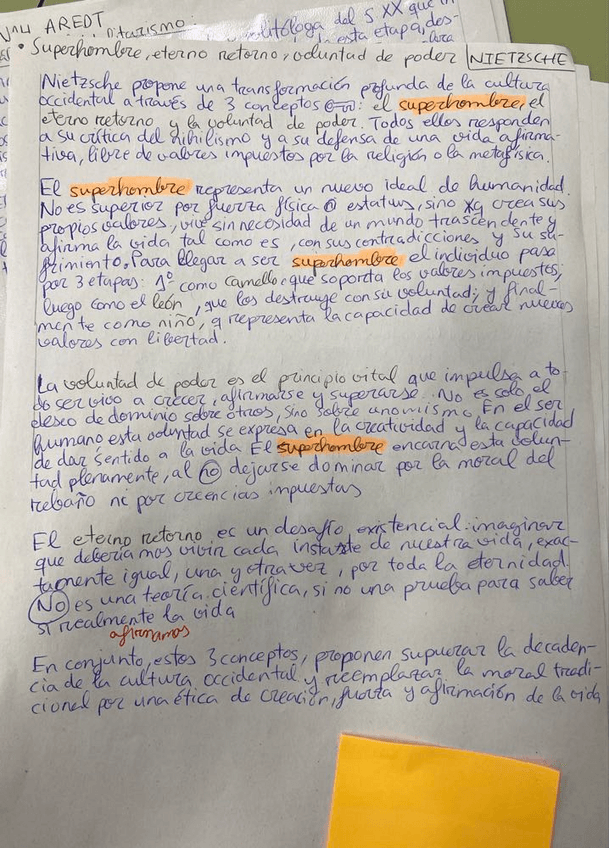 AREDT
litarismo:
litóloga del S XX que
esta etapa, des-
• Superhombre, eterno retorno, voluntad de poder NIETZSCHE
Nietzsche propone una transformación profunda de la cultura
occidental a través de 3 conceptos : el superhombre, el
eterno retorno y la voluntad de poder. Todos ellos responden
a su crítica del nihilismo y a su defensa de una vida afirma-
tiva, libre de valores impuestos por la religión o la metafísica.
El superhombre representa un nuevo ideal de humanidad.
No es superior por fuerza física o estatus, sino xq crea sus
propios valores, vive sin necesidad de un mundo trascendente y
afirma la vida tal como es, con sus contradicciones y su su-
frimiento. Para llegar a ser superhombre el individuo pasa
por 3 etapas: 1º como camello, que soporta los valores impuestos;
luego como el león, que los destruye con su voluntad; y final-
mente como niño, q representa la capacidad de crear nuevos
valores con libertad.
La voluntad de poder es el principio vital que impulsa a to-
do ser vivo a crecer, afirmarse y superarse. No es solo el
deseo de dominio sobre otros, sino sobre uno mismo. En el ser
humano esta voluntad se expresa en la creatividad y la capacidad
de dar sentido a la vida El superhombre encarna esta volun-
tad plenamente, al no dejarse dominar por la moral del
rebaño ni por creencias impuestas
El eterno retorno es un desafío existencial: imaginar
que deberíamos vivir cada instante de nuestra vida, exac-
tamente igual, una y otra vez, por toda la eternidad.
No es una teoría científica, si no una prueba para saber
si realmente la vida
afirmamos
En conjunto, estos 3 conceptos, proponen superar la decaden-
cia de la cultura occidental y reemplazar la moral tradi-
cional por una ética de creación, fuerza y afirmación de la vida